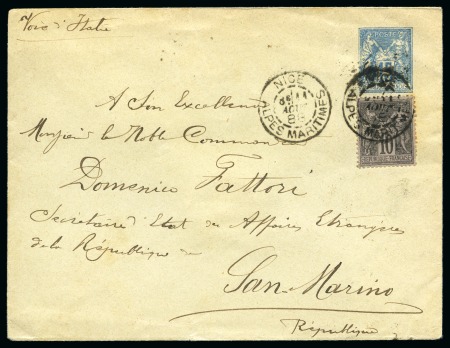 Voie d'Italie
A Son Excellence
Monsieur le Noble Comman
Domenico Fattori
Secretaire Etat des Affaires Etrangères
de la République de
San-Marino
République
NICE
ALPES MARITIMES
POSTE
10